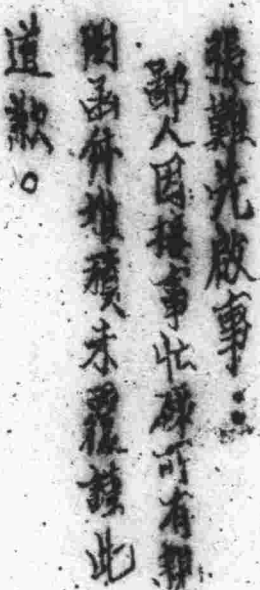 張難先啟事：
鄙人因揆事忙碌所有親
閱函件堆積未覆謹此
道歉。